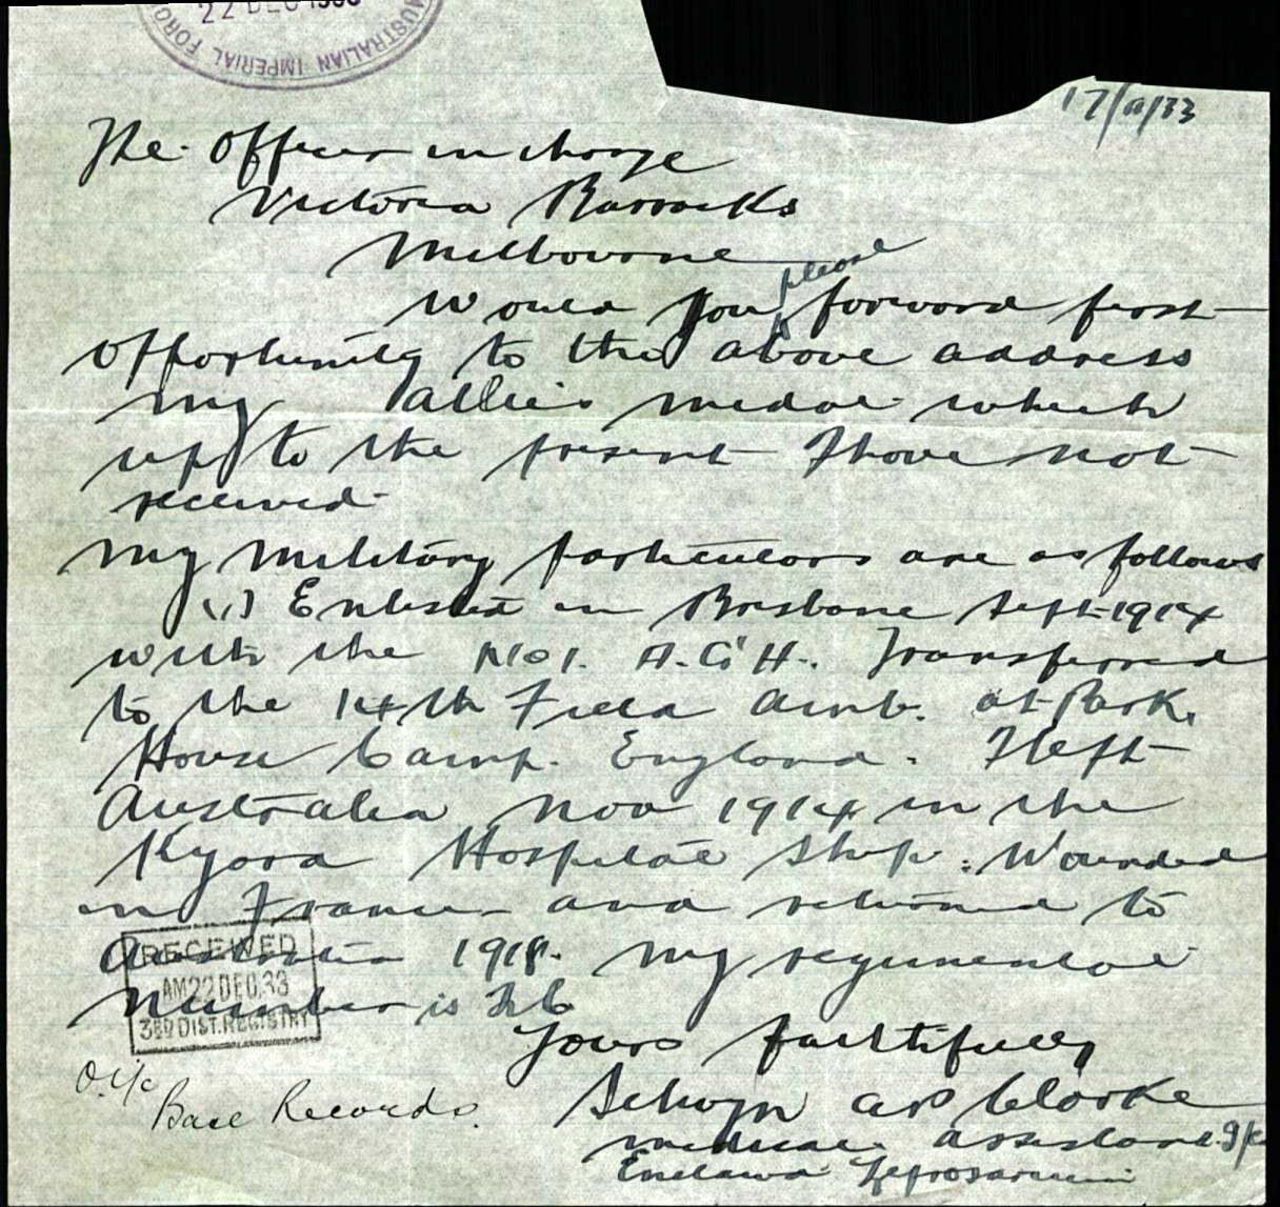 22 DEC 1933
AUSTRALIAN IMPERIAL FORC
The Officer in charge
Victoria Barracks
Melbourne
please
Would you forward first
opportunity to the above address
my Allies medal which
up to the present I have not
received
My military particulars are as follows
(1) Enlisted in Brisbane Sept 1914
with the No 1. A.G.H. Transferred
to the 14th Field Amb. at Park
House Camp. England. I left
Australia Nov 1914 in the
Kyarra Hospital Ship. Wounded
in France and returned to
Australia 1918. My regimental
Number is
RECEIVED
AM 22 DEC. 33
3RD DIST. REGISTRY
Yours faithfully
Selwyn Clarke
medical assistant
O. i/c
Base Records.